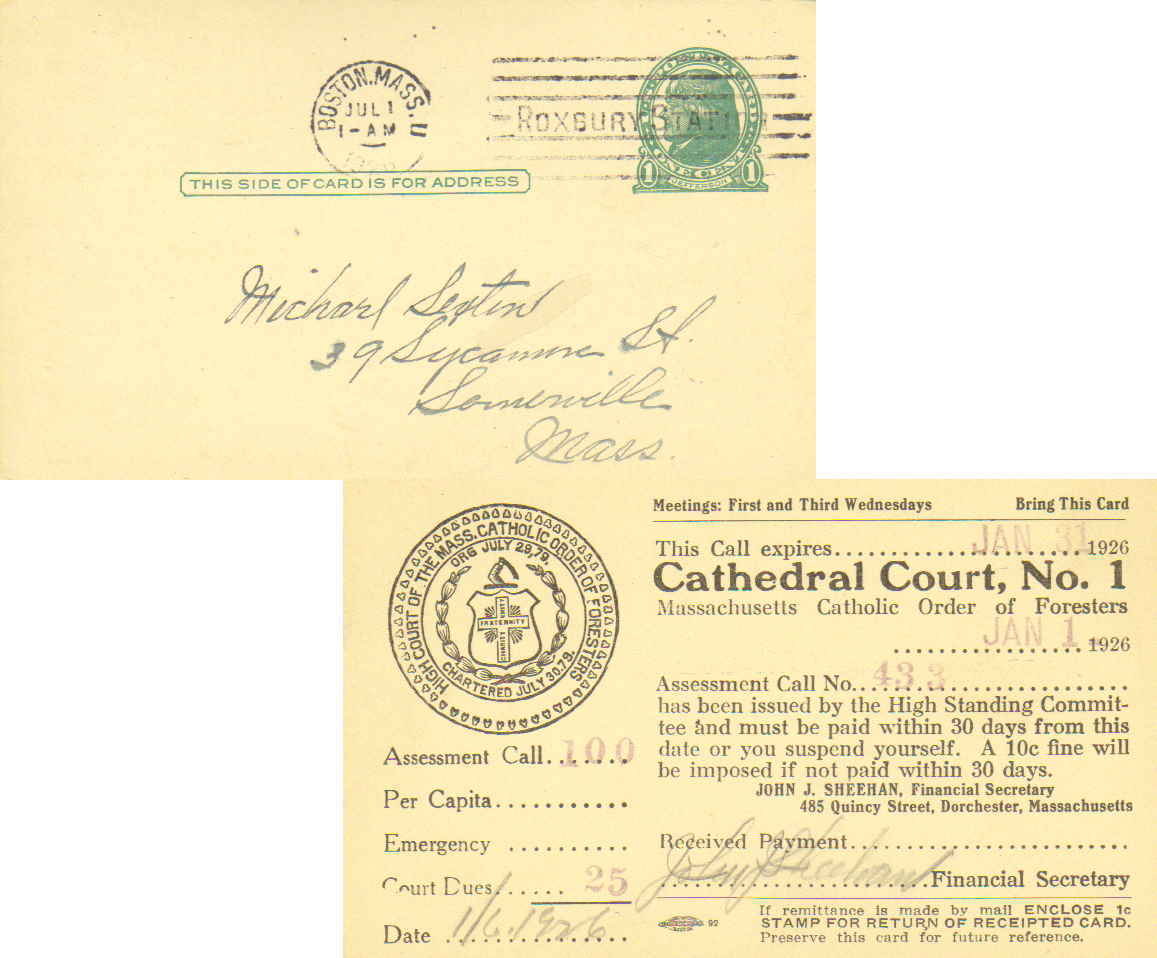 BOSTON, MASS. U
JUL 1
1-AM
ROXBURY STATION
THIS SIDE OF CARD IS FOR ADDRESS
1 JEFFERSON 1
Michael Sexton
39 Sycamore St.
Somerville
Mass.
HIGH COURT OF THE MASS. CATHOLIC ORDER OF FORESTERS
ORG JULY 29,79.
UNITY
FRATERNITY
CHARITY
CHARTERED JULY 30.79.
Assessment Call....... 100
Per Capita...........
Emergency ..........
Court Dues...... 25
Date 1/6.1926
Meetings: First and Third Wednesdays Bring This Card
This Call expires.......JAN 31.......1926
Cathedral Court, No. 1
Massachusetts Catholic Order of Foresters
JAN 1 1926
Assessment Call No. 433
has been issued by the High Standing Commit-
tee and must be paid within 30 days from this
date or you suspend yourself. A 10c fine will
be imposed if not paid within 30 days.
JOHN J. SHEEHAN, Financial Secretary
485 Quincy Street, Dorchester, Massachusetts
Received Payment..........................
John J Sheehan Financial Secretary
92 If remittance is made by mail ENCLOSE 1c
STAMP FOR RETURN OF RECEIPTED CARD.
Preserve this card for future reference.